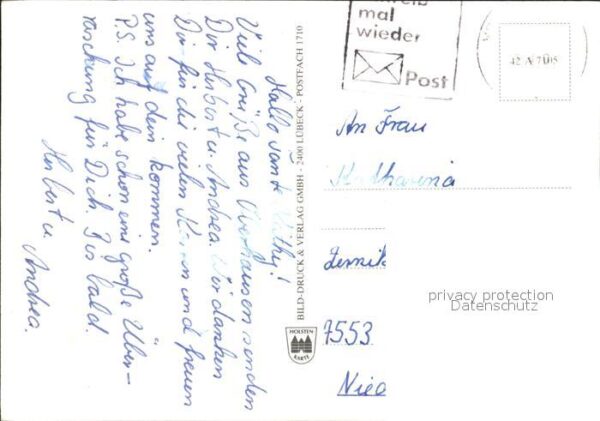 Hallo Tante Käthy!
Viele Grüße aus Oberhausen senden
Dir Herbert u. Andrea. Wir danken
Dir für die vielen Karten und freuen
uns auf dein kommen.
P.S. Ich habe schon eine große Über-
raschung für Dich. Bis bald.
Herbert u.
Andrea.
BILD-DRUCK & VERLAG GMBH - 2400 LÜBECK - POSTFACH 1710
HOLSTEN
KARTE
mal
wieder
Post
42 A 7005
An Frau
Katharina
7553
privacy protection
Datenschutz